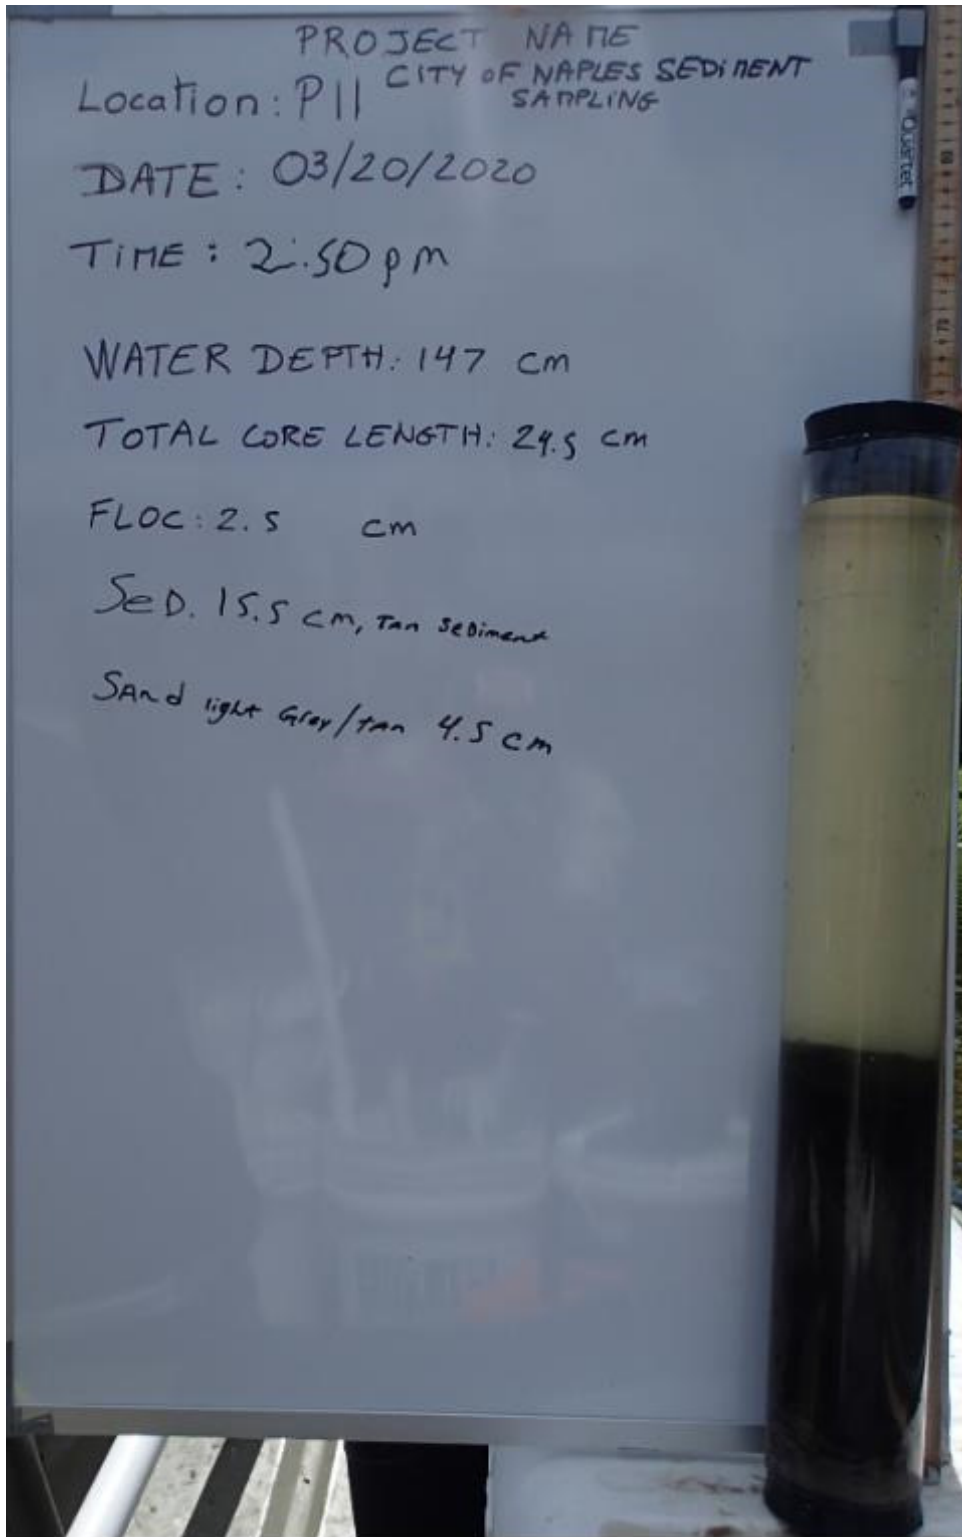 PROJECT NAME
Location: P11 CITY OF NAPLES SEDIMENT
SAMPLING
DATE: 03/20/2020
TIME: 2:50 pm
WATER DEPTH: 147 cm
TOTAL CORE LENGTH: 24.5 cm
FLOC: 2.5 cm
SeD. 15.5 cm, Tan Sediment
SAnd light Gray/tan 4.5 cm
Quartet